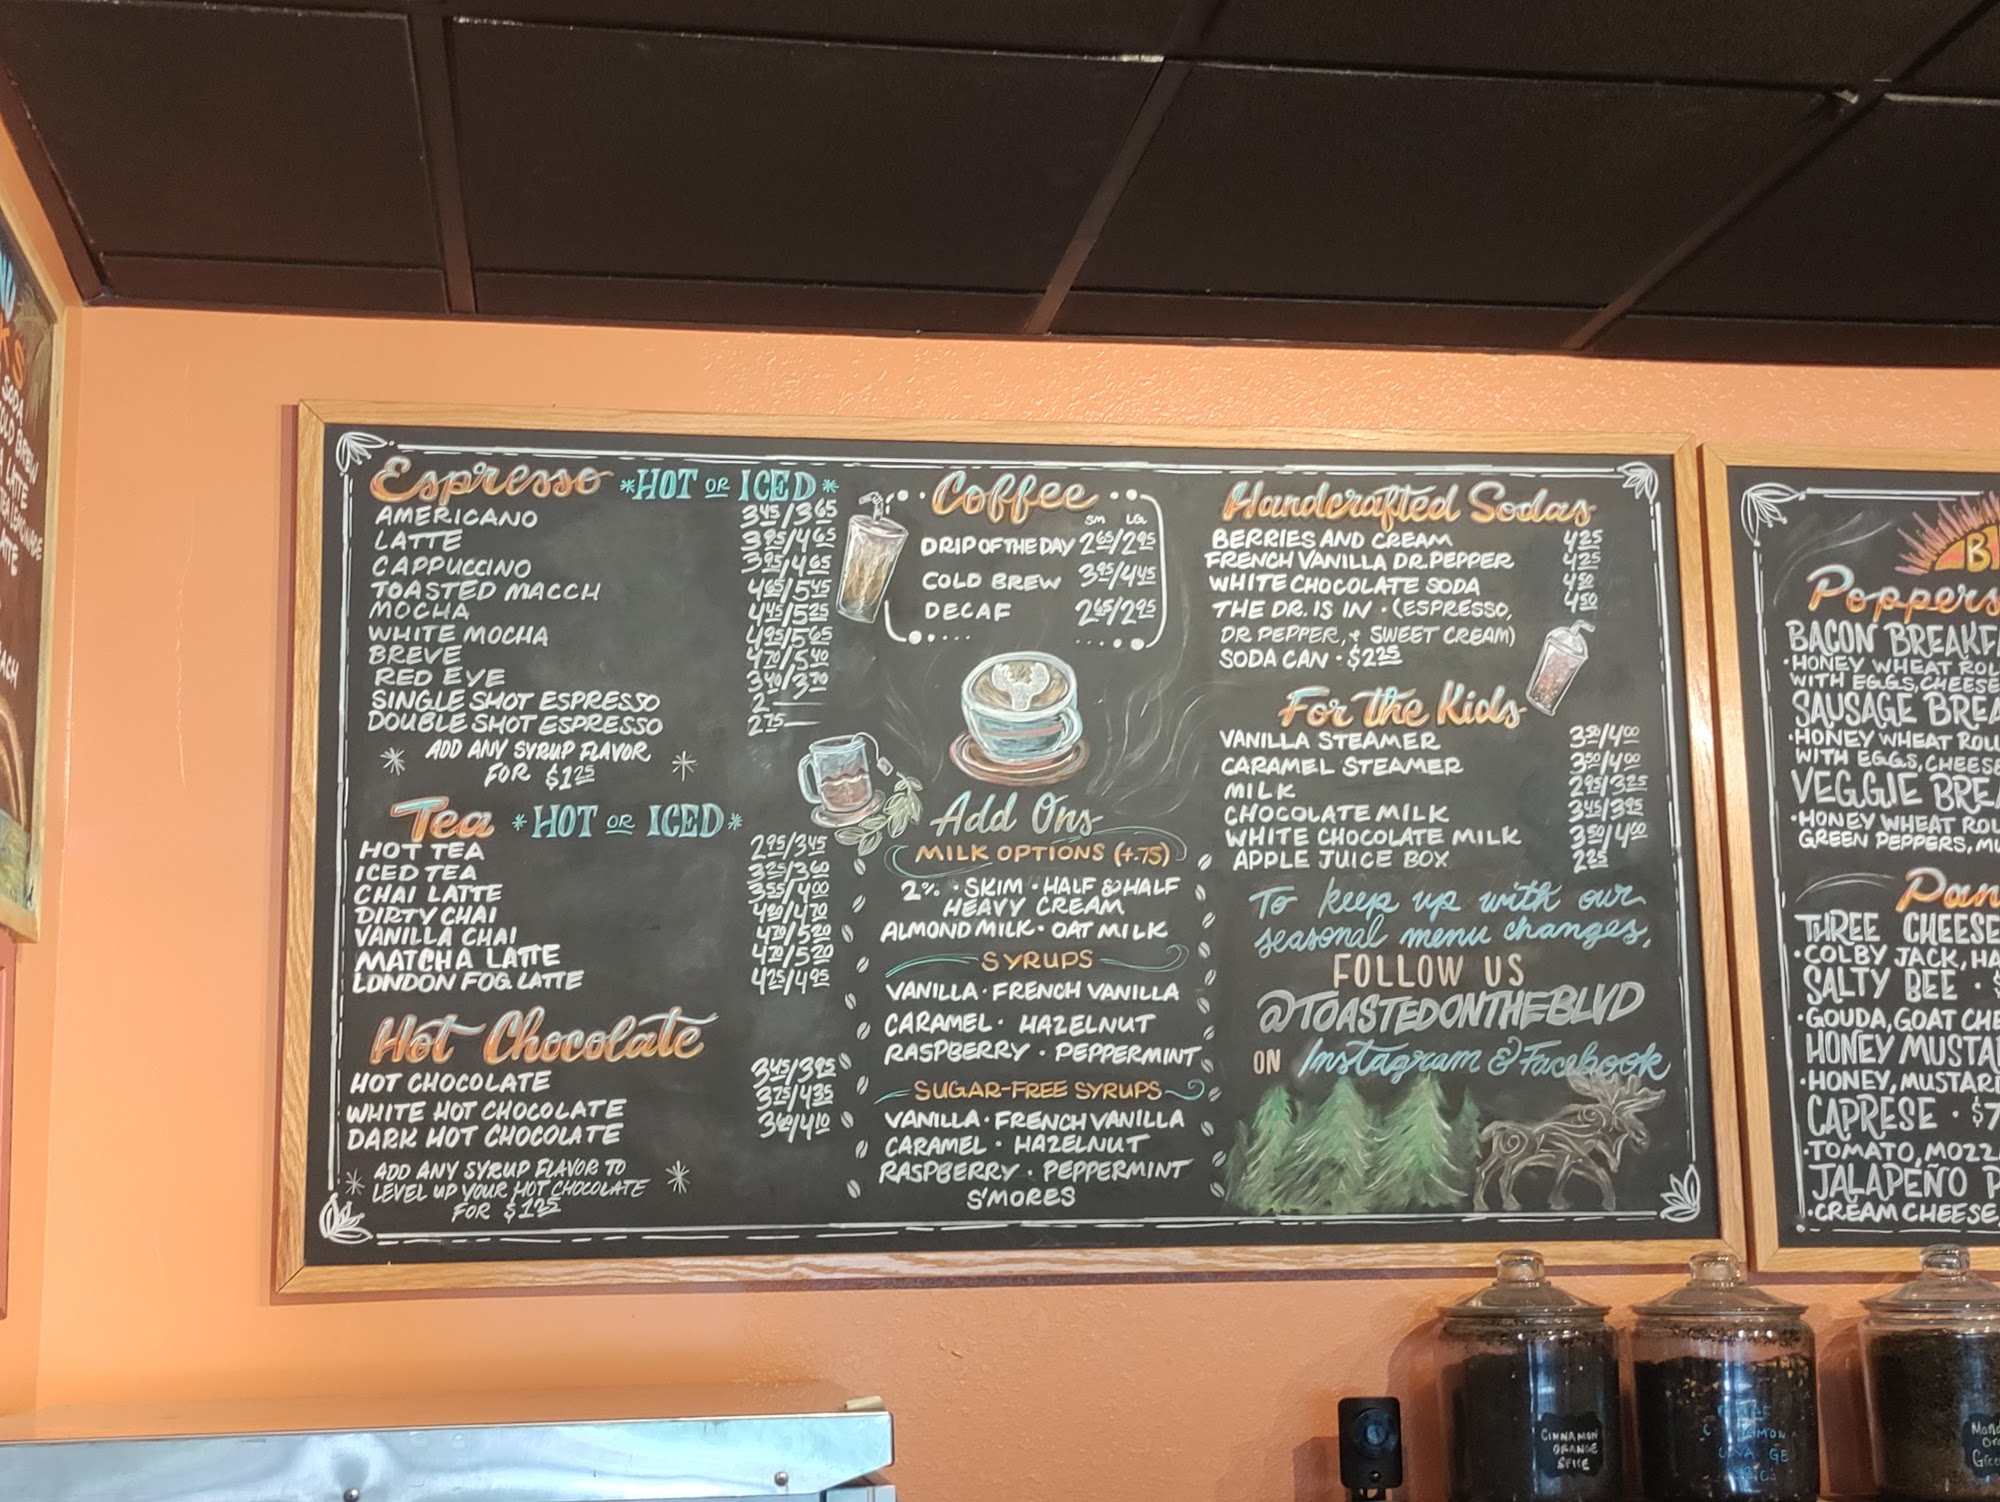 Espresso *HOT OR ICED*
AMERICANO 3.45/3.65
LATTE 3.95/4.65
CAPPUCCINO 3.95/4.65
TOASTED MACCH 4.65/5.45
MOCHA 4.45/5.25
WHITE MOCHA 4.95/5.65
BREVE 4.70/5.40
RED EYE 3.40/3.70
SINGLE SHOT ESPRESSO 2—
DOUBLE SHOT ESPRESSO 2.75—
* ADD ANY SYRUP FLAVOR *
FOR $1.25
Tea *HOT OR ICED*
HOT TEA 2.95/3.45
ICED TEA 3.25/3.60
CHAI LATTE 3.55/4.00
DIRTY CHAI 4.20/4.70
VANILLA CHAI 4.70/5.20
MATCHA LATTE 4.70/5.20
LONDON FOG LATTE 4.25/4.95
Hot Chocolate
HOT CHOCOLATE 3.45/3.95
WHITE HOT CHOCOLATE 3.75/4.35
DARK HOT CHOCOLATE 3.60/4.10
* ADD ANY SYRUP FLAVOR TO *
LEVEL UP YOUR HOT CHOCOLATE
FOR $1.25
Coffee
SM LG
DRIP OF THE DAY 2.65/2.95
COLD BREW 3.95/4.45
DECAF 2.65/2.95
Add Ons
MILK OPTIONS (+.75)
2% · SKIM · HALF & HALF
HEAVY CREAM
ALMOND MILK · OAT MILK
SYRUPS
VANILLA · FRENCH VANILLA
CARAMEL · HAZELNUT
RASPBERRY · PEPPERMINT
SUGAR-FREE SYRUPS
VANILLA · FRENCH VANILLA
CARAMEL · HAZELNUT
RASPBERRY · PEPPERMINT
S'MORES
Handcrafted Sodas
BERRIES AND CREAM 4.25
FRENCH VANILLA DR. PEPPER 4.25
WHITE CHOCOLATE SODA 4.50
THE DR. IS IN · (ESPRESSO, 4.50
DR PEPPER, + SWEET CREAM)
SODA CAN · $2.25
For the Kids
VANILLA STEAMER 3.50/4.00
CARAMEL STEAMER 3.50/4.00
MILK 2.95/3.25
CHOCOLATE MILK 3.45/3.95
WHITE CHOCOLATE MILK 3.50/4.00
APPLE JUICE BOX 2.25
To keep up with our
seasonal menu changes,
FOLLOW US
@TOASTEDONTHEBLVD
ON Instagram & Facebook
Poppers
BACON BREAKF
·HONEY WHEAT ROL
WITH EGGS, CHEESE
SAUSAGE BREA
·HONEY WHEAT ROLL
WITH EGGS, CHEESE
VEGGIE BREA
·HONEY WHEAT ROL
GREEN PEPPERS, MU
Pan
THREE CHEESE
·COLBY JACK, HA
SALTY BEE · $
·GOUDA, GOAT CHE
HONEY MUSTA
·HONEY, MUSTARD
CAPRESE · $7
·TOMATO, MOZZ
JALAPEÑO P
·CREAM CHEESE,
SODA
COLD BREW
LATTE
CINNAMON
ORANGE
SPICE